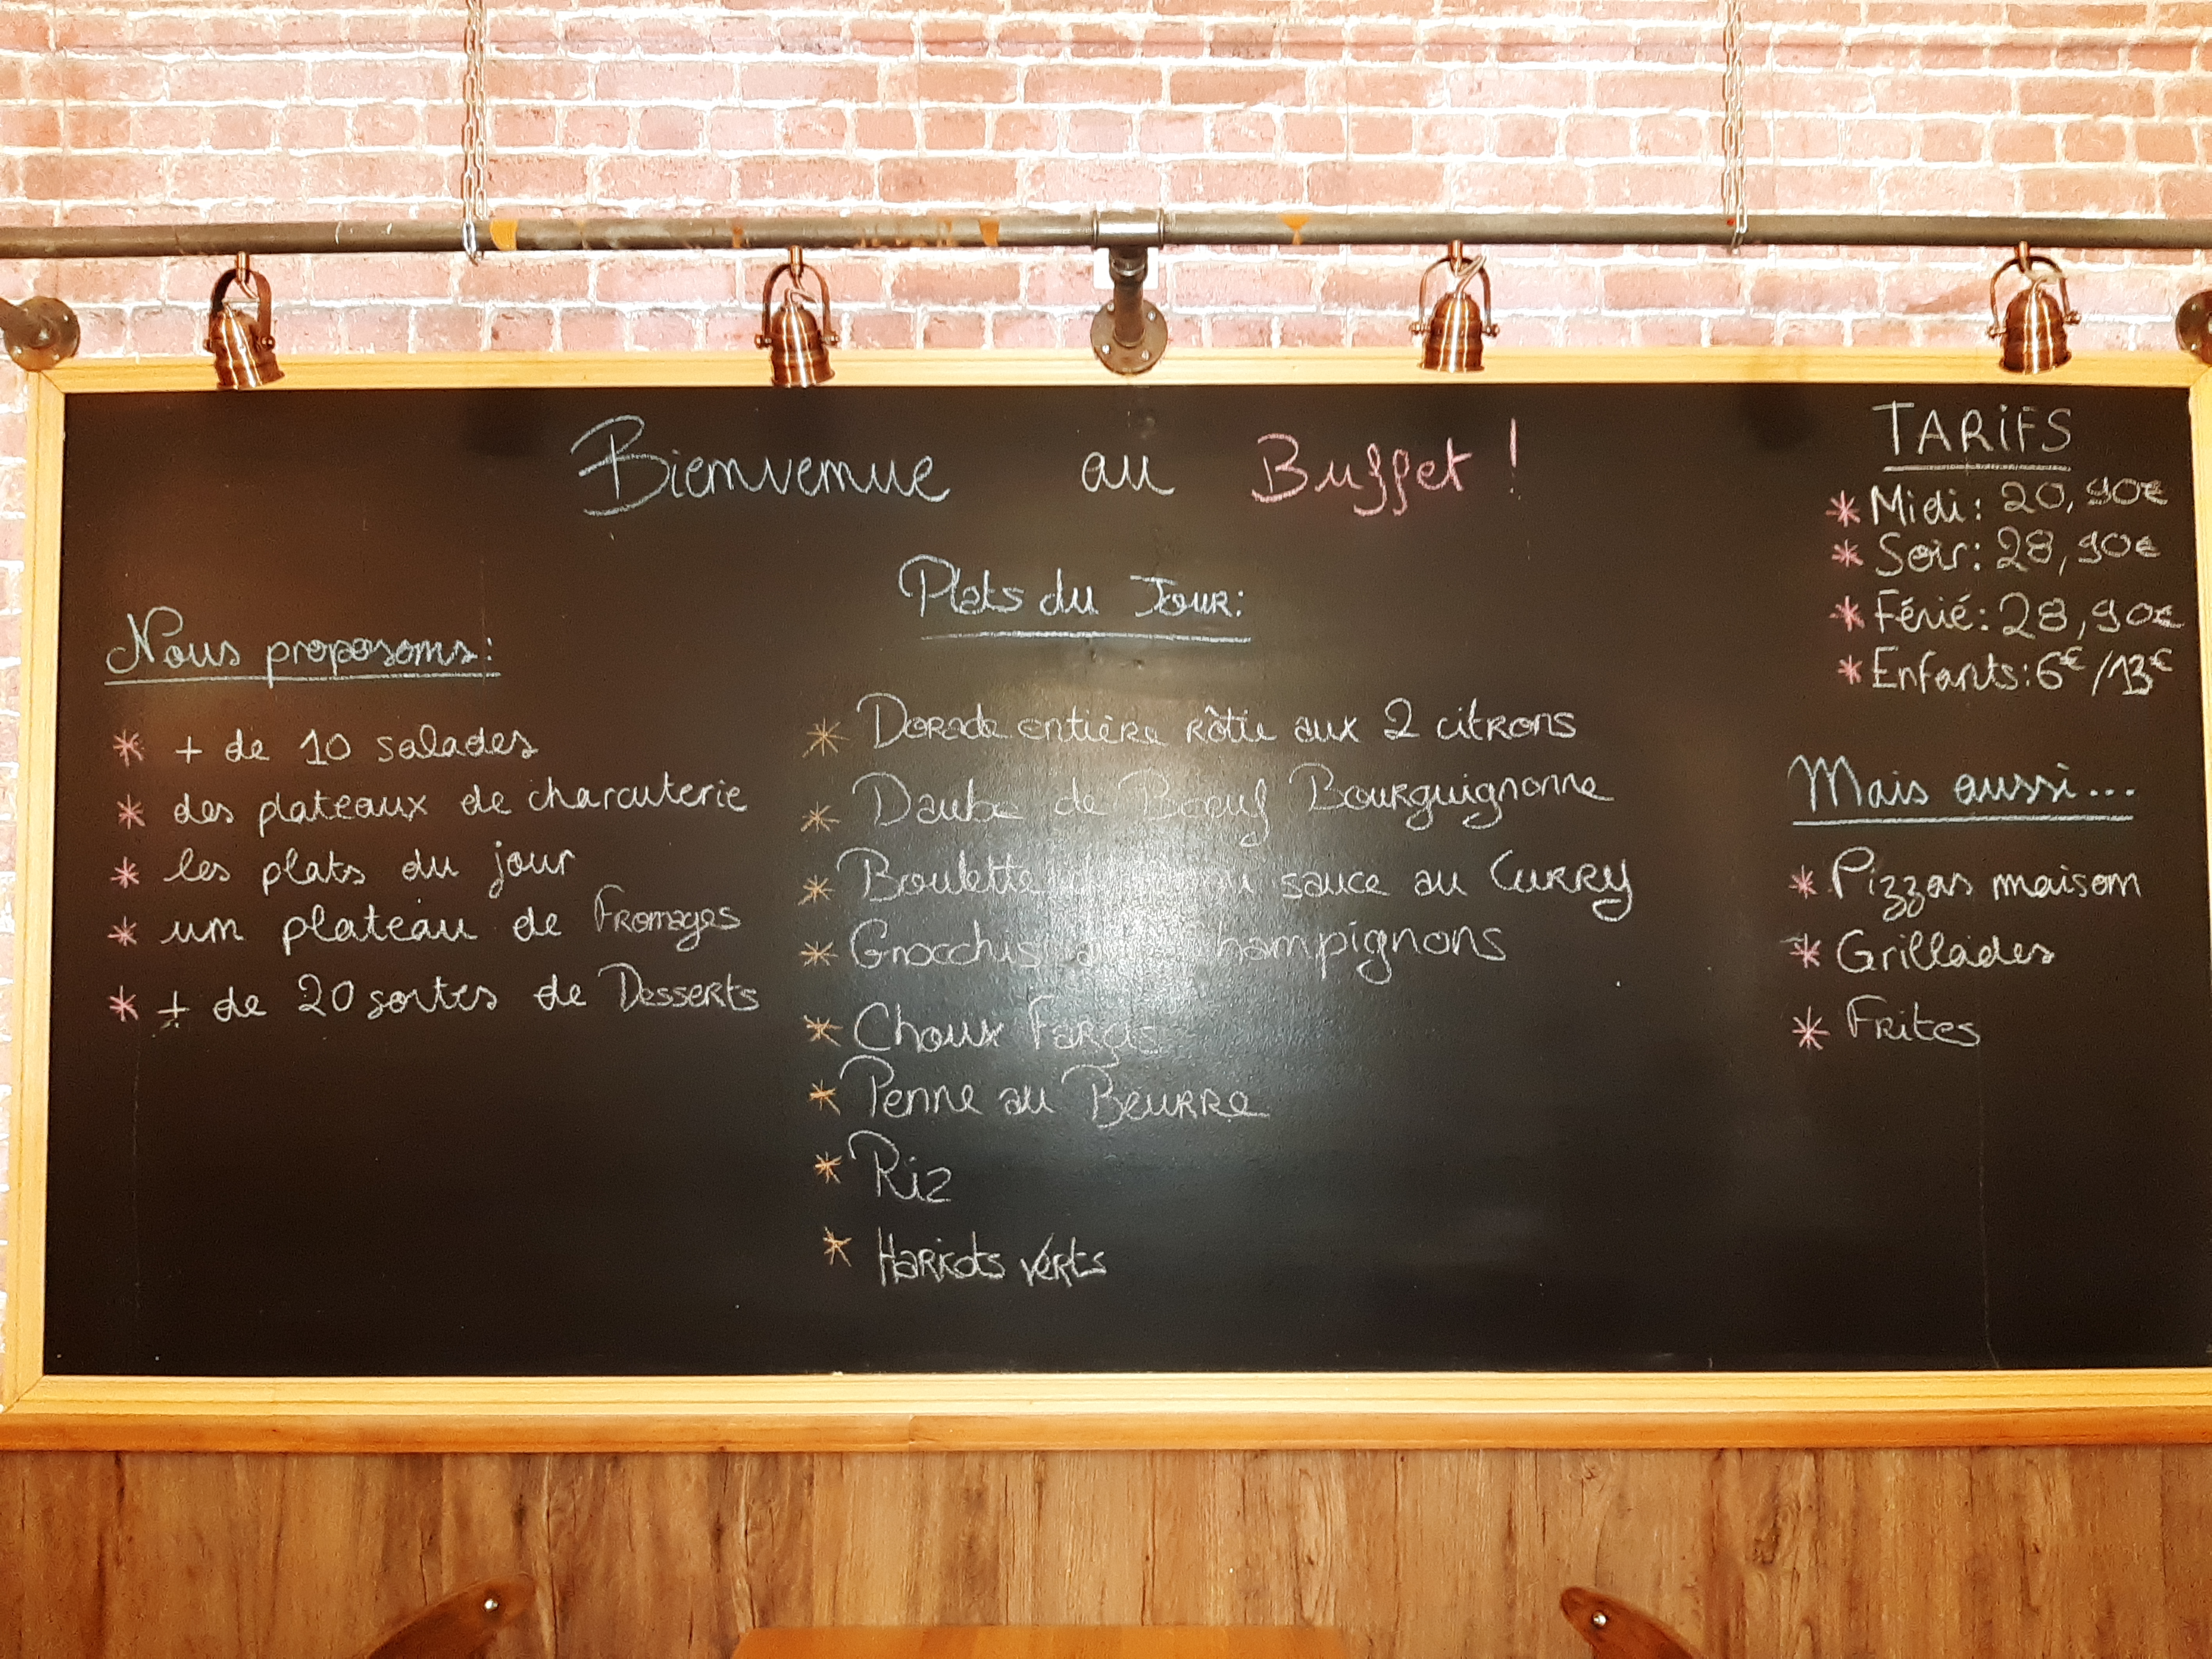 Bienvenue au Buffet !
Nous proposons:
+ de 10 salades
des plateaux de charcuterie
les plats du jour
un plateau de Fromages
+ de 20 sortes de Desserts
Plats du Jour:
Dorade entière rôtie aux 2 citrons
Daube de Boeuf Bourguignonne
Boulette sauce au Curry
Gnocchis champignons
Choux Farcis
Penne au Beurre
Riz
Haricots verts
TARIFS
Midi: 20,90€
Soir: 28,90€
Férié: 28,90€
Enfants: 6€/13€
Mais aussi...
Pizzas maison
Grillades
Frites